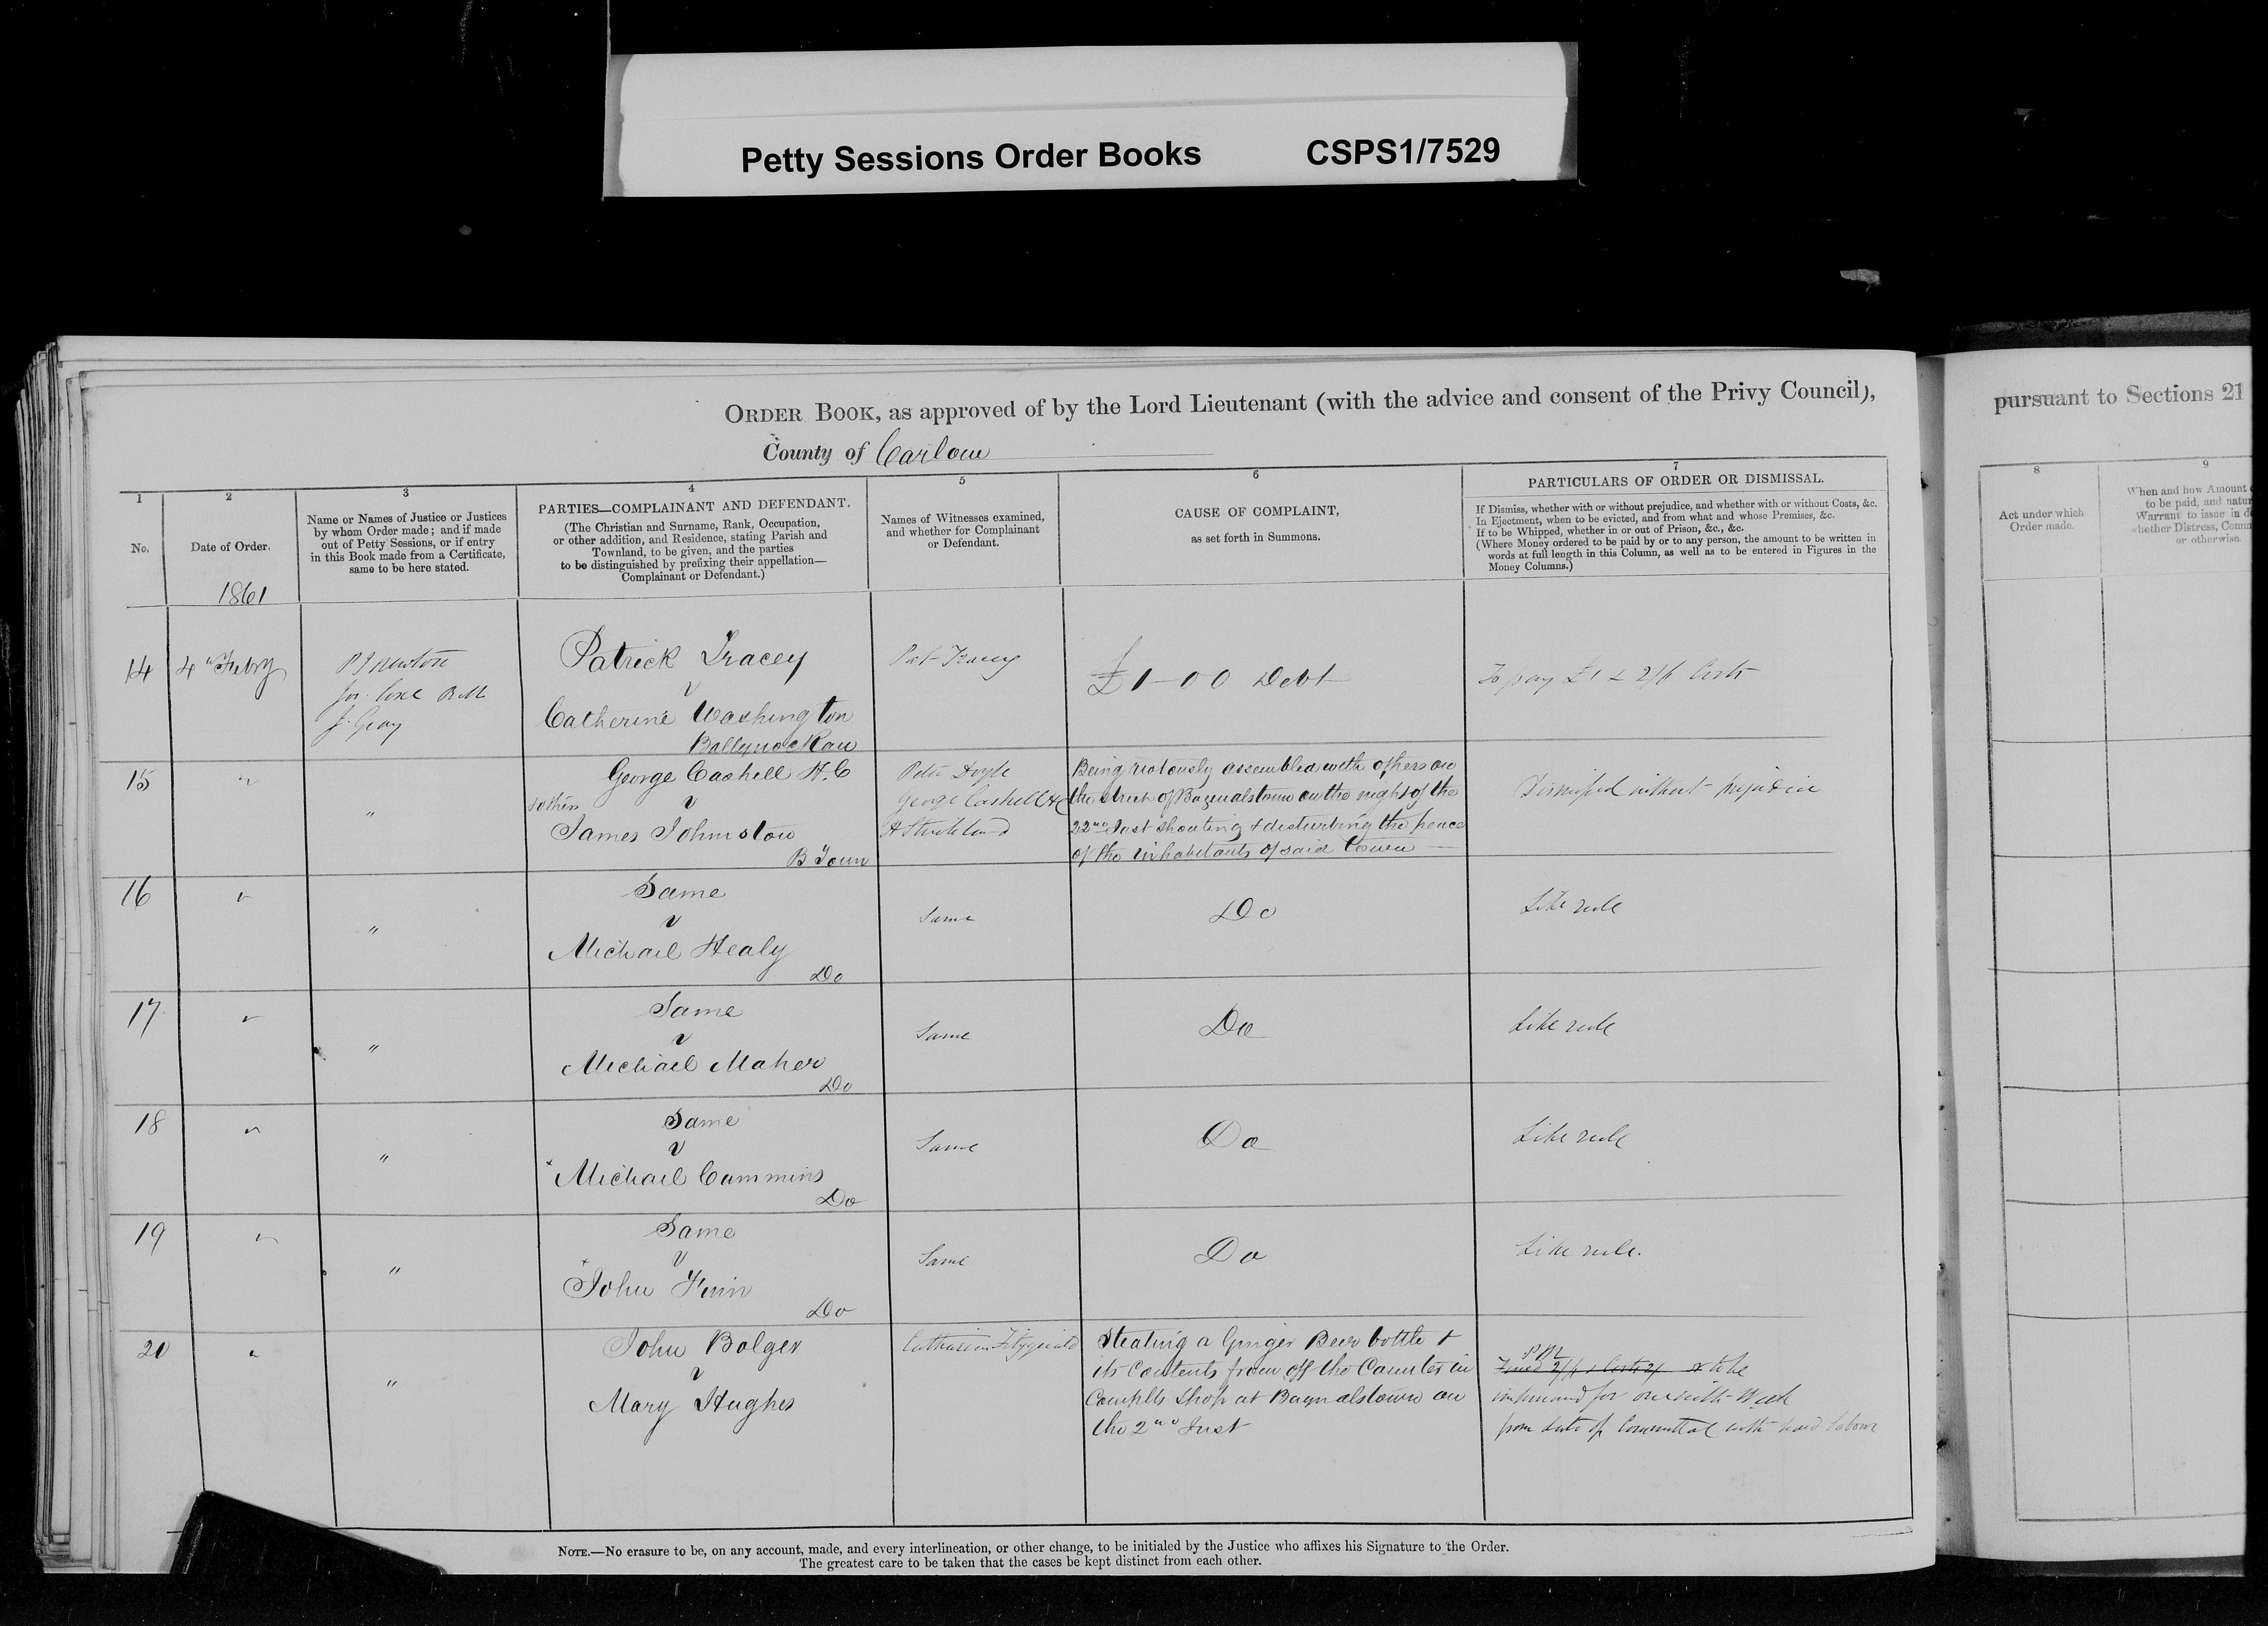 Petty Sessions Order Books CSPS1/7529
ORDER BOOK, as approved of by the Lord Lieutenant (with the advice and consent of the Privy Council),
County of Carlow
1
No.
2
Date of Order.
1861
3
Name or Names of Justice or Justices
by whom Order made; and if made
out of Petty Sessions, or if entry
in this Book made from a Certificate,
same to be here stated.
4
PARTIES—COMPLAINANT AND DEFENDANT.
(The Christian and Surname, Rank, Occupation,
or other addition, and Residence, stating Parish and
Townland, to be given, and the parties
to be distinguished by prefixing their appellation—
Complainant or Defendant.)
5
Names of Witnesses examined,
and whether for Complainant
or Defendant.
6
CAUSE OF COMPLAINT,
as set forth in Summons.
7
PARTICULARS OF ORDER OR DISMISSAL.
If Dismiss, whether with or without prejudice, and whether with or without Costs, &c.
In Ejectment, when to be evicted, and from what and whose Premises, &c.
If to be Whipped, whether in or out of Prison, &c., &c.
(Where Money ordered to be paid by or to any person, the amount to be written in
words at full length in this Column, as well as to be entered in Figures in the
Money Columns.)
14
4" Febry
P J Newton
Jos. Coxe R M
J. Gray
Patrick Tracey
v
Catherine Washington
Ballynockan
Pat Tracey
£1-00 Debt
To pay £1 & 2/6 Costs
15
"
"
George Cashell H.C
v
James Johnston
B Town
Peter Doyle
George Cashell H C
Being riotously assembled with others on
the street of Bagnalstown on the night of the
22nd Inst shouting & disturbing the peace
of the inhabitants of said Town
Dismissed without prejudice
16
"
"
Same
v
Michael Healy
Do
Same
Do
Like rule
17
"
"
Same
v
Michael Maher
Do
Same
Do
Like rule
18
"
"
Same
v
Michael Cummins
Do
Same
Do
Like rule
19
"
"
Same
v
John Finn
Do
Same
Do
Like rule.
20
"
"
John Bolger
v
Mary Hughes
Catharine Fitzgerald
Stealing a Ginger Beer bottle &
its Contents from off the Counter in
Complts Shop at Bagnalstown on
the 2nd Inst
Fined 2/6 & Costs 2/ & to be
imprisoned for one Week
from date of Committal with hard labour
NOTE.—No erasure to be, on any account, made, and every interlineation, or other change, to be initialed by the Justice who affixes his Signature to the Order.
The greatest care to be taken that the cases be kept distinct from each other.
pursuant to Sections 21
8
Act under which
Order made.
9
When and how Amount
to be paid, and natur
Warrant to issue in d
whether Distress, Comm
or otherwise.